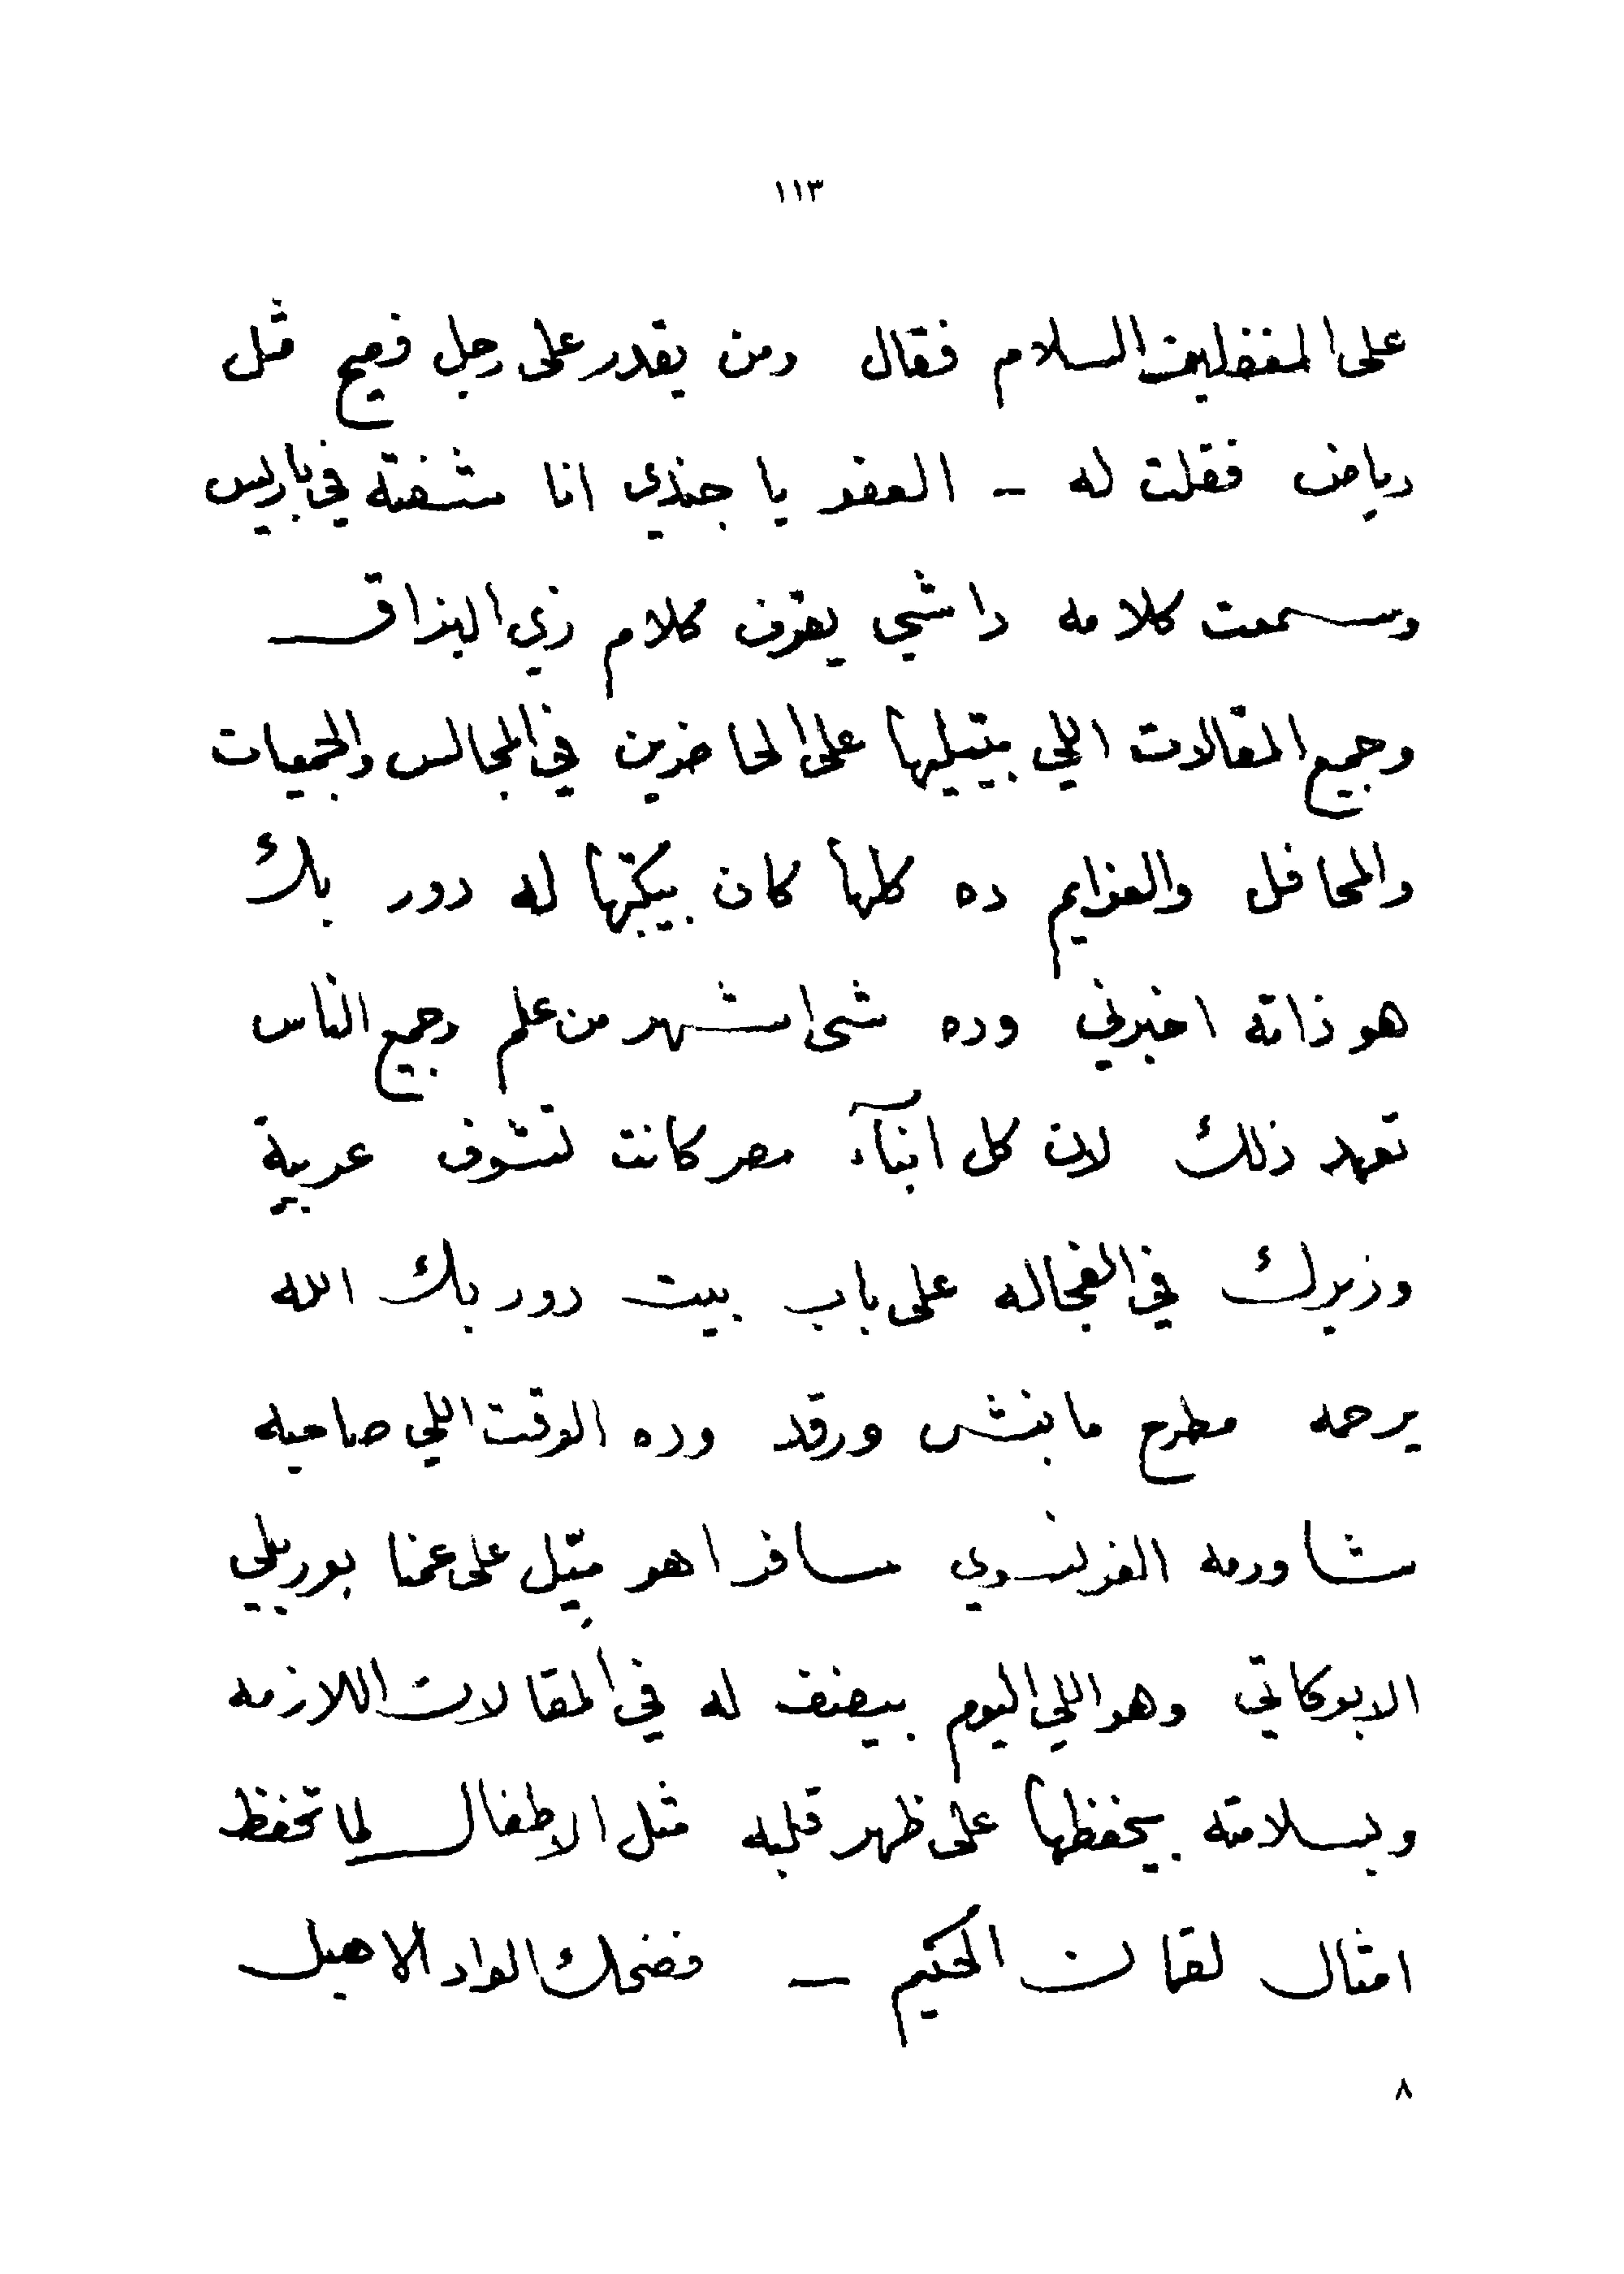 ١١٣
على المغفلين السلام فقال ومن يقدر على رجل فصيح مثل
رياض فقلت له - العفو يا جندي انا شفته في باريس
وسمعت كلامه داشي يقرف كلام زي البزاق
وجميع المقالات اللي بيتيلها على الحاضرين في المجالس والجمعيات
والمحافل والعزايم ده كلها كان بيكتبها له دور بك
هو ذاته اخبرني وده شى اشهر من علم وجميع الناس
تعهد ذلك لان كل ابنآء مصر كانت تشوف عربية
وزيرك في الفجاله على باب بيت دور بك الله
يرحمه مطرح ما بنش ورقد وده الوقت اللي صاحبه
شاورمه الفرنسوي سافر اهو بيتل على عمنا بوريلي
الابوكاتي وهو اللي اليوم بيصنف له في المقالات اللازمه
وبسلامته بيحفظها على ظهر قلبه مثل الاطفال لما تحفظ
امثال لقمان الحكيم — فضحك الواد الاهبل
٨